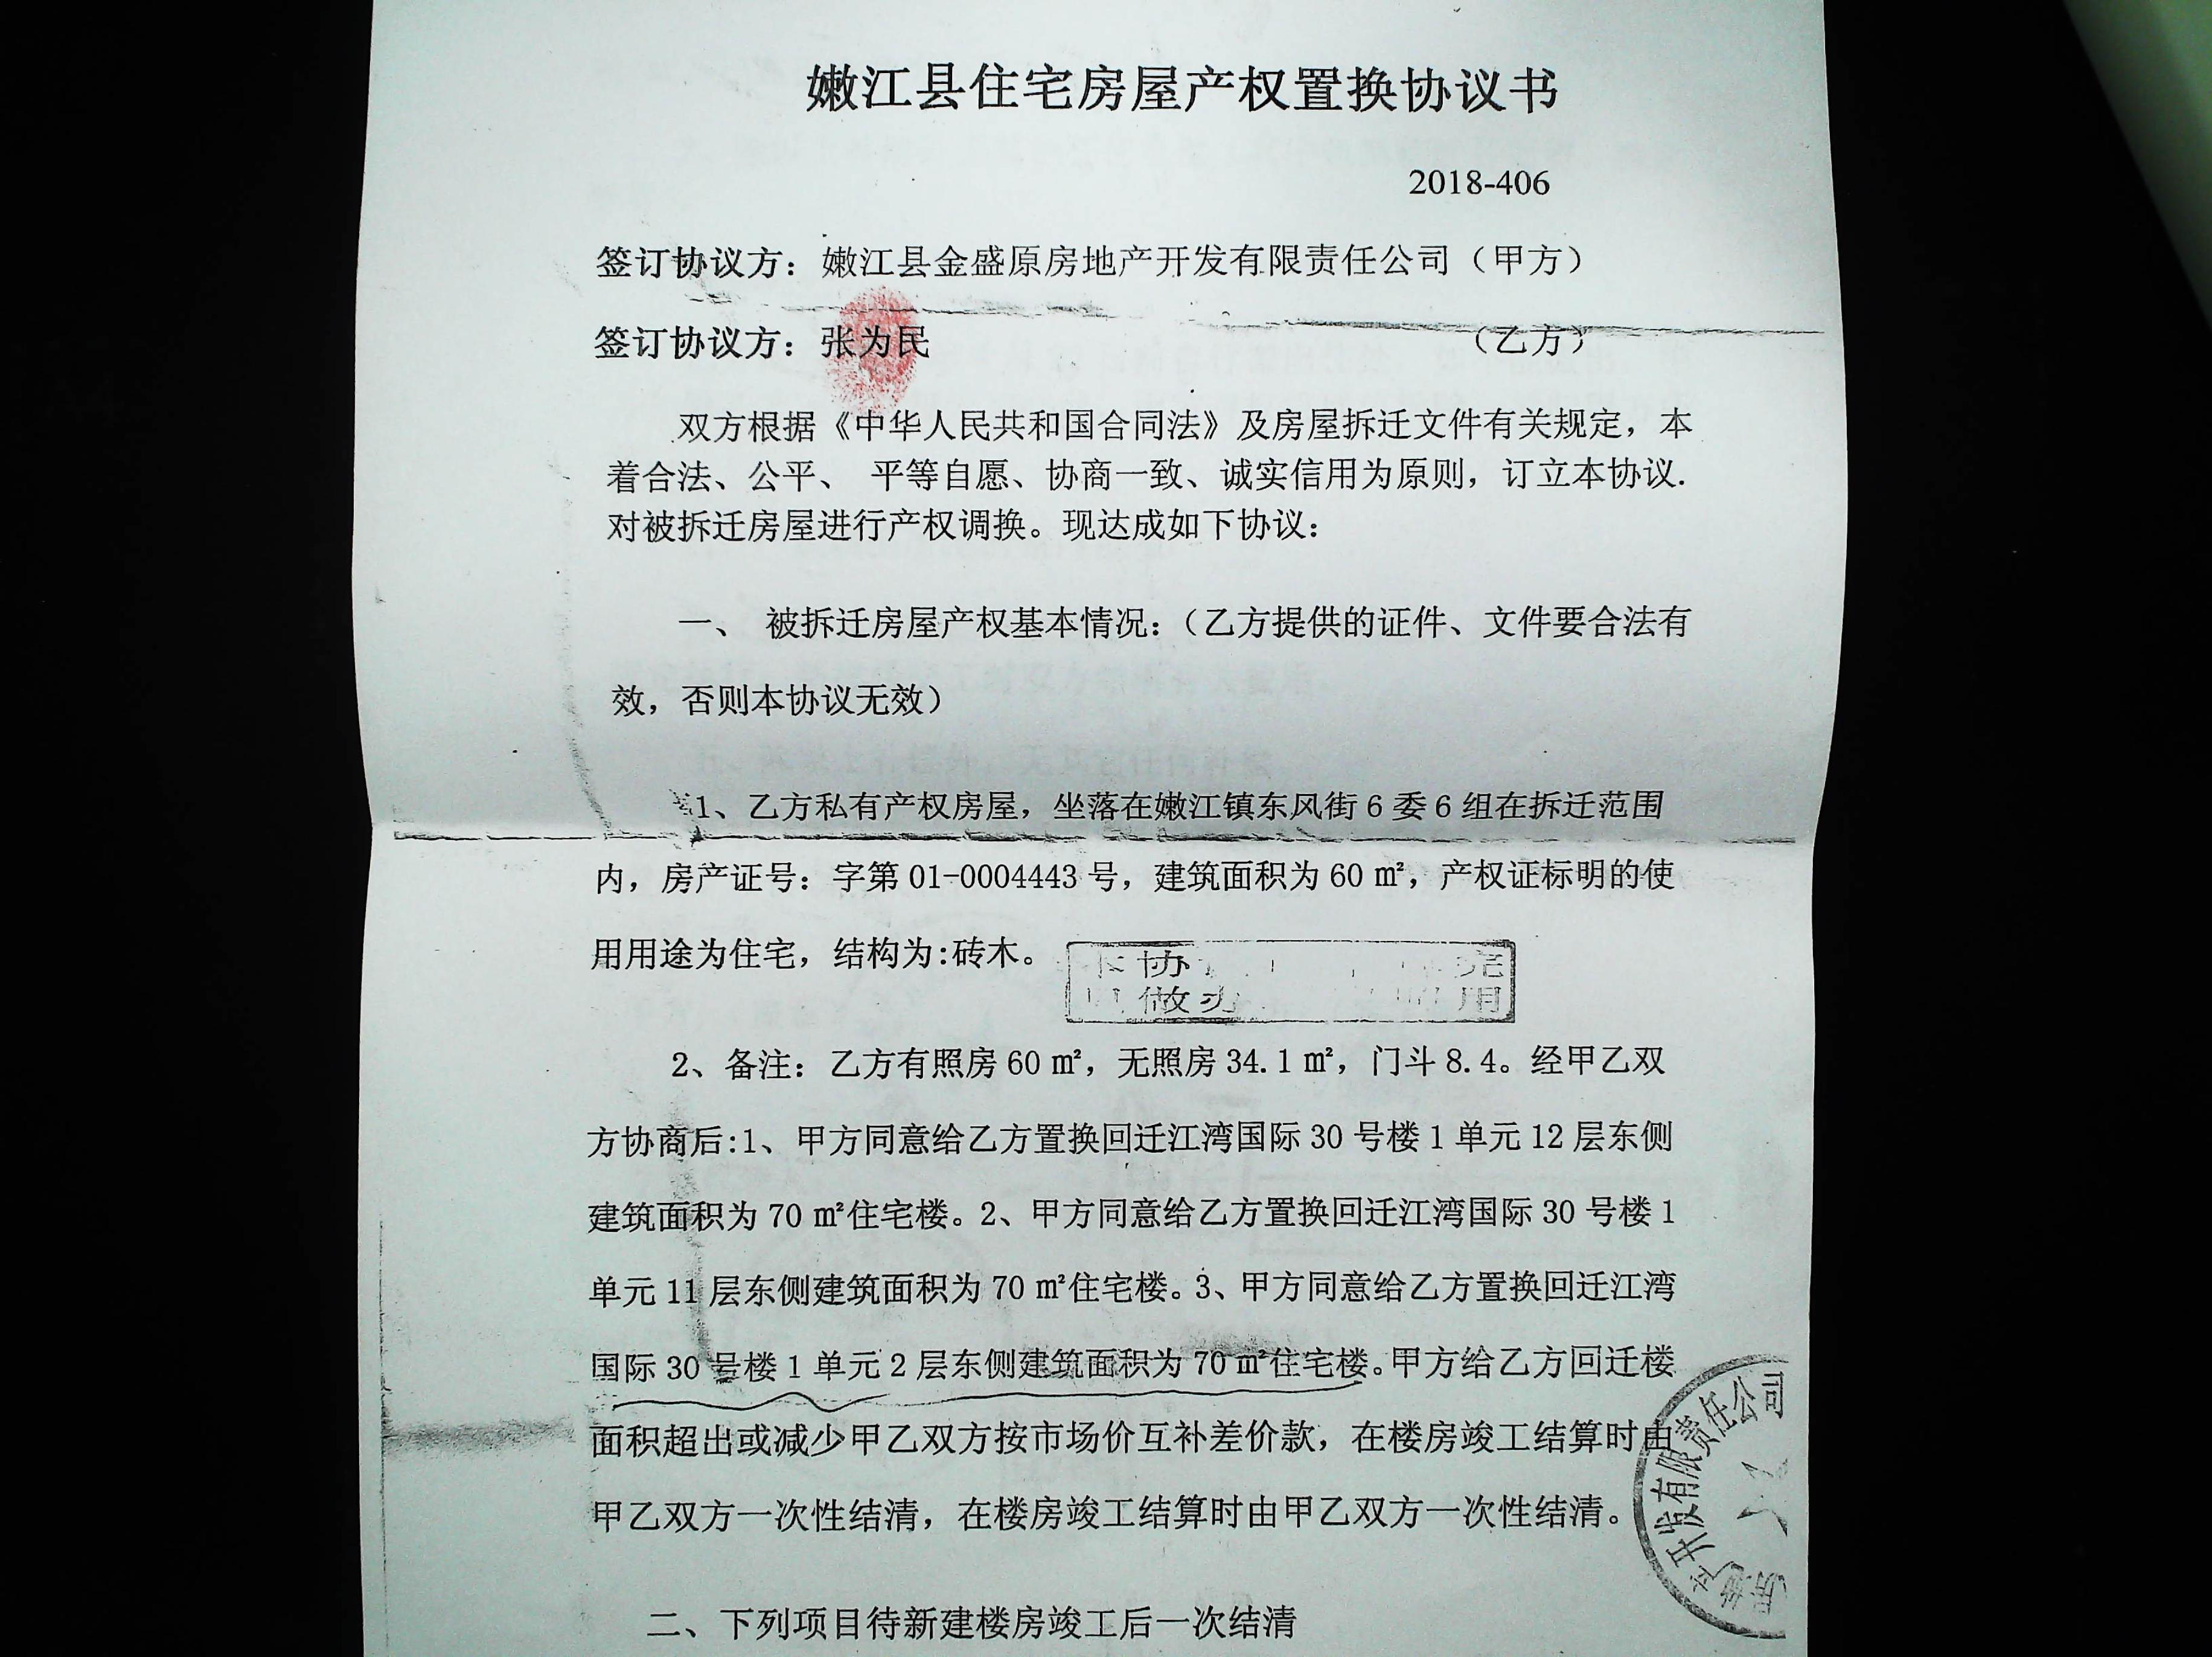 嫩江县住宅房屋产权置换协议书
2018-406
签订协议方：嫩江县金盛原房地产开发有限责任公司（甲方）
签订协议方：张为民 （乙方）
双方根据《中华人民共和国合同法》及房屋拆迁文件有关规定，本
着合法、公平、 平等自愿、协商一致、诚实信用为原则，订立本协议.
对被拆迁房屋进行产权调换。现达成如下协议：
一、 被拆迁房屋产权基本情况：（乙方提供的证件、文件要合法有
效，否则本协议无效）
1、乙方私有产权房屋，坐落在嫩江镇东风街 6 委 6 组在拆迁范围
内，房产证号：字第 01-0004443 号，建筑面积为 60 ㎡，产权证标明的使
用用途为住宅，结构为:砖木。
协
做 用
2、备注：乙方有照房 60 ㎡，无照房 34.1 ㎡，门斗 8.4。经甲乙双
方协商后:1、甲方同意给乙方置换回迁江湾国际 30 号楼 1 单元 12 层东侧
建筑面积为 70 ㎡住宅楼。2、甲方同意给乙方置换回迁江湾国际 30 号楼 1
单元 11 层东侧建筑面积为 70 ㎡住宅楼。3、甲方同意给乙方置换回迁江湾
国际 30 号楼 1 单元 2 层东侧建筑面积为 70 ㎡住宅楼。甲方给乙方回迁楼
面积超出或减少甲乙双方按市场价互补差价款，在楼房竣工结算时由
甲乙双方一次性结清，在楼房竣工结算时由甲乙双方一次性结清。
房地产开发有限责任公司
二、下列项目待新建楼房竣工后一次结清